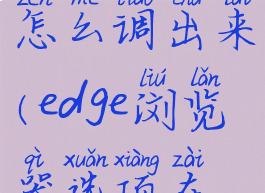 zěn me diào chū lái
怎么调出来
liú lǎn
(edge浏览
qì xuǎn xiàng zài
器选项在